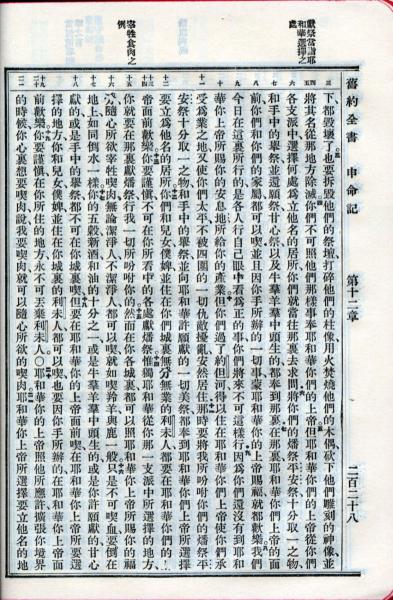 舊約全書　申命記　第十二章　二百二十八
獻祭當詣耶
和華選擇之
處
下都毀壞了也要拆毀他們的祭壇打碎他們的柱像用火焚燒他們的木偶砍下他們雕刻的神像並
將其名從那地方除滅你們不可照他們那樣事奉耶和華你們的上帝但耶和華你們的上帝從你們
各支派中選擇何處為立他名的居所你們就當往那裏去求問將你們的燔祭平安祭十分取一之物
和手中的舉祭並還願祭甘心祭以及牛羣羊羣中頭生的都奉到那裏在那裏耶和華你們上帝的面
前你們和你們的家屬都可以喫並且因你手所辦的一切事蒙耶和華你的上帝賜福就都歡樂我們
今日在這裏所行的是各人行自己眼中看為正的事你們將來不可這樣行因為你們還沒有到耶和
華你上帝所賜你的安息地所給你的產業但你們過了約但河得以住在耶和華你們上帝使你們承
受為業之地又使你們太平不被四圍的一切仇敵擾亂安然居住那時要將我所吩咐你們的燔祭平
安祭十分取一之物和手中的舉祭並向耶和華許願獻的一切美祭都奉到耶和華你們上帝所選擇
要立為他名的居所你們和兒女僕婢並住在你們城裏無分無業的利未人都要在耶和華你們的上
宰牲食肉之
例
帝面前歡樂你要謹慎不可在你所看中的各處獻燔祭惟獨耶和華從你那一支派中所選擇的地方
你就要在那裏獻燔祭行我一切所吩咐你的然而在你各城裏都可以照耶和華你上帝所賜你的福
分隨心所欲宰牲喫肉無論潔淨人不潔淨人都可以喫就如喫羚羊與鹿一般只是不可喫血要倒在
地上如同倒水一樣你的五穀新酒和油的十分之一或是牛羣羊羣中頭生的或是你許願獻的甘心
獻的或是手中的舉祭都不可在你城裏喫但要在耶和華你的上帝面前喫在耶和華你的上帝所要選
擇的地方你和兒女僕婢並住在你城裏的利未人都可以喫也要因你手所辦的在耶和華你上帝面
前歡樂你要謹慎在你所住的地方永不可丟棄利未人○耶和華你的上帝照他所應許擴張你境界
的時候你心裏想要喫肉說我要喫肉就可以隨心所欲的喫肉耶和華你上帝所選擇要立他名的地